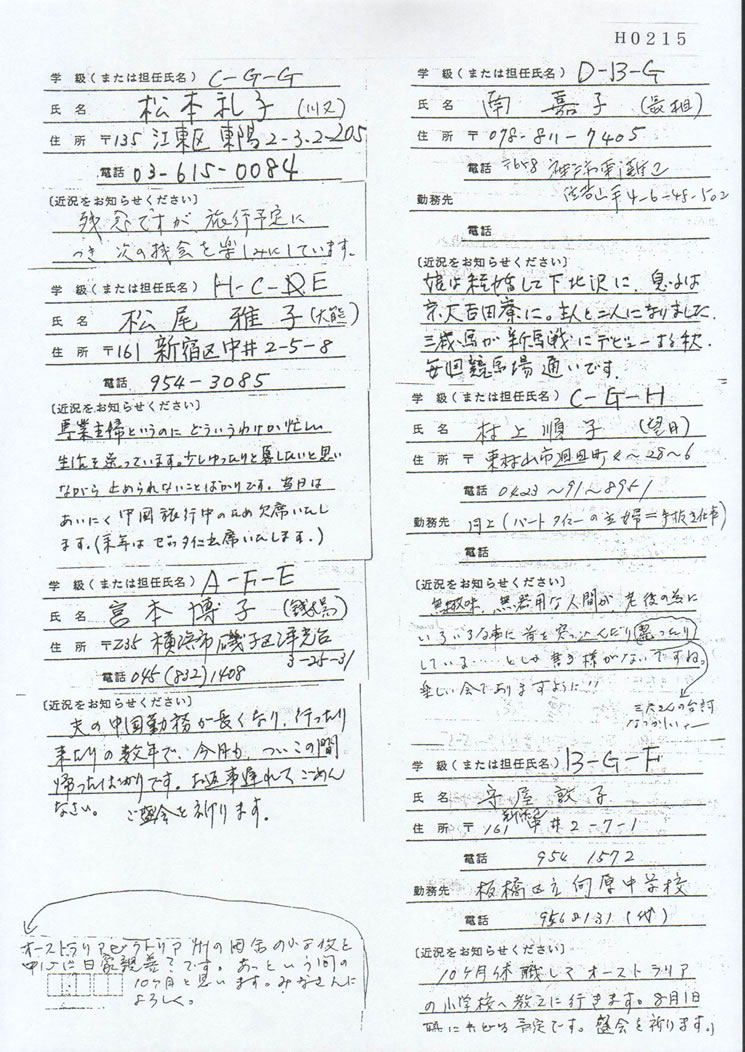 H0215
学 級(または担任氏名) C-G-G
氏 名 松本礼子 (川又)
住 所 〒135 江東区東陽2-3-2-205
電話 03-615-0084
〔近況をお知らせください〕
残念ですが 旅行予定に
つき 次の機会を楽しみにしています。
学 級(または担任氏名) H-C-E
氏 名 松尾 雅子 (大熊)
住 所 〒161 新宿区中井2-5-8
電話 954-3085
〔近況をお知らせください〕
専業主婦というのに どういうわけか忙しい
生活を送っています。少しゆったりと暮したいと思い
ながら 止められないことばかりです。当日は
あいにく 中国旅行中のため欠席いたし
ます。(来年は ゼッタイ出席いたします。)
学 級(または担任氏名) A-F-E
氏 名 宮本 博子
住 所 〒235 横浜市磯子区洋光台
3-25-31
電話 045(832)1408
〔近況をお知らせください〕
夫の中国勤務が長くなり、行ったり
来たりの数年で、今月も、ついこの間
帰ったばかりです。お返事遅れて、ごめん
なさい。 ご盛会を祈ります。
学 級(または担任氏名) D-B-G
氏 名 南 嘉子 (最相)
住 所 〒 078-811-7405
電話 〒658 神戸市東灘区
住吉山手4-6-45-502
勤務先
電話
〔近況をお知らせください〕
娘は結婚して下北沢に、息子は
京大吉田寮に。主人と二人になりました。
三歳馬が新馬戦にデビューする秋、
毎回競馬場通いです。
学 級(または担任氏名) C-G-H
氏 名 村上順子 (望月)
住 所 〒 東村山市廻田町4~28~6
電話 0423~91~8951
勤務先 同上(パートタイマーの主婦=手抜き仕事)
電話
〔近況をお知らせください〕
無趣味、無器用な人間が 老後の為に
いろいろな事に首を突っ込んだり
している……としか書き様がないですね。
楽しい会でありますように!!
なつかしい
学 級(または担任氏名) B-G-F
氏 名 守屋 敦子
住 所 〒161 新宿区中井2-7-1
電話 954 1572
勤務先 板橋区立向原中学校
電話 956 8131 (代)
〔近況をお知らせください〕
10ヶ月休職して オーストラリア
の小学校へ教えに行きます。8月1日
予定です。盛会を祈ります。
オーストラリアビクトリア州の田舎の小学校を
中心に日豪親善です。あっという間の
10ヶ月と思います。みなさんに
よろしく。